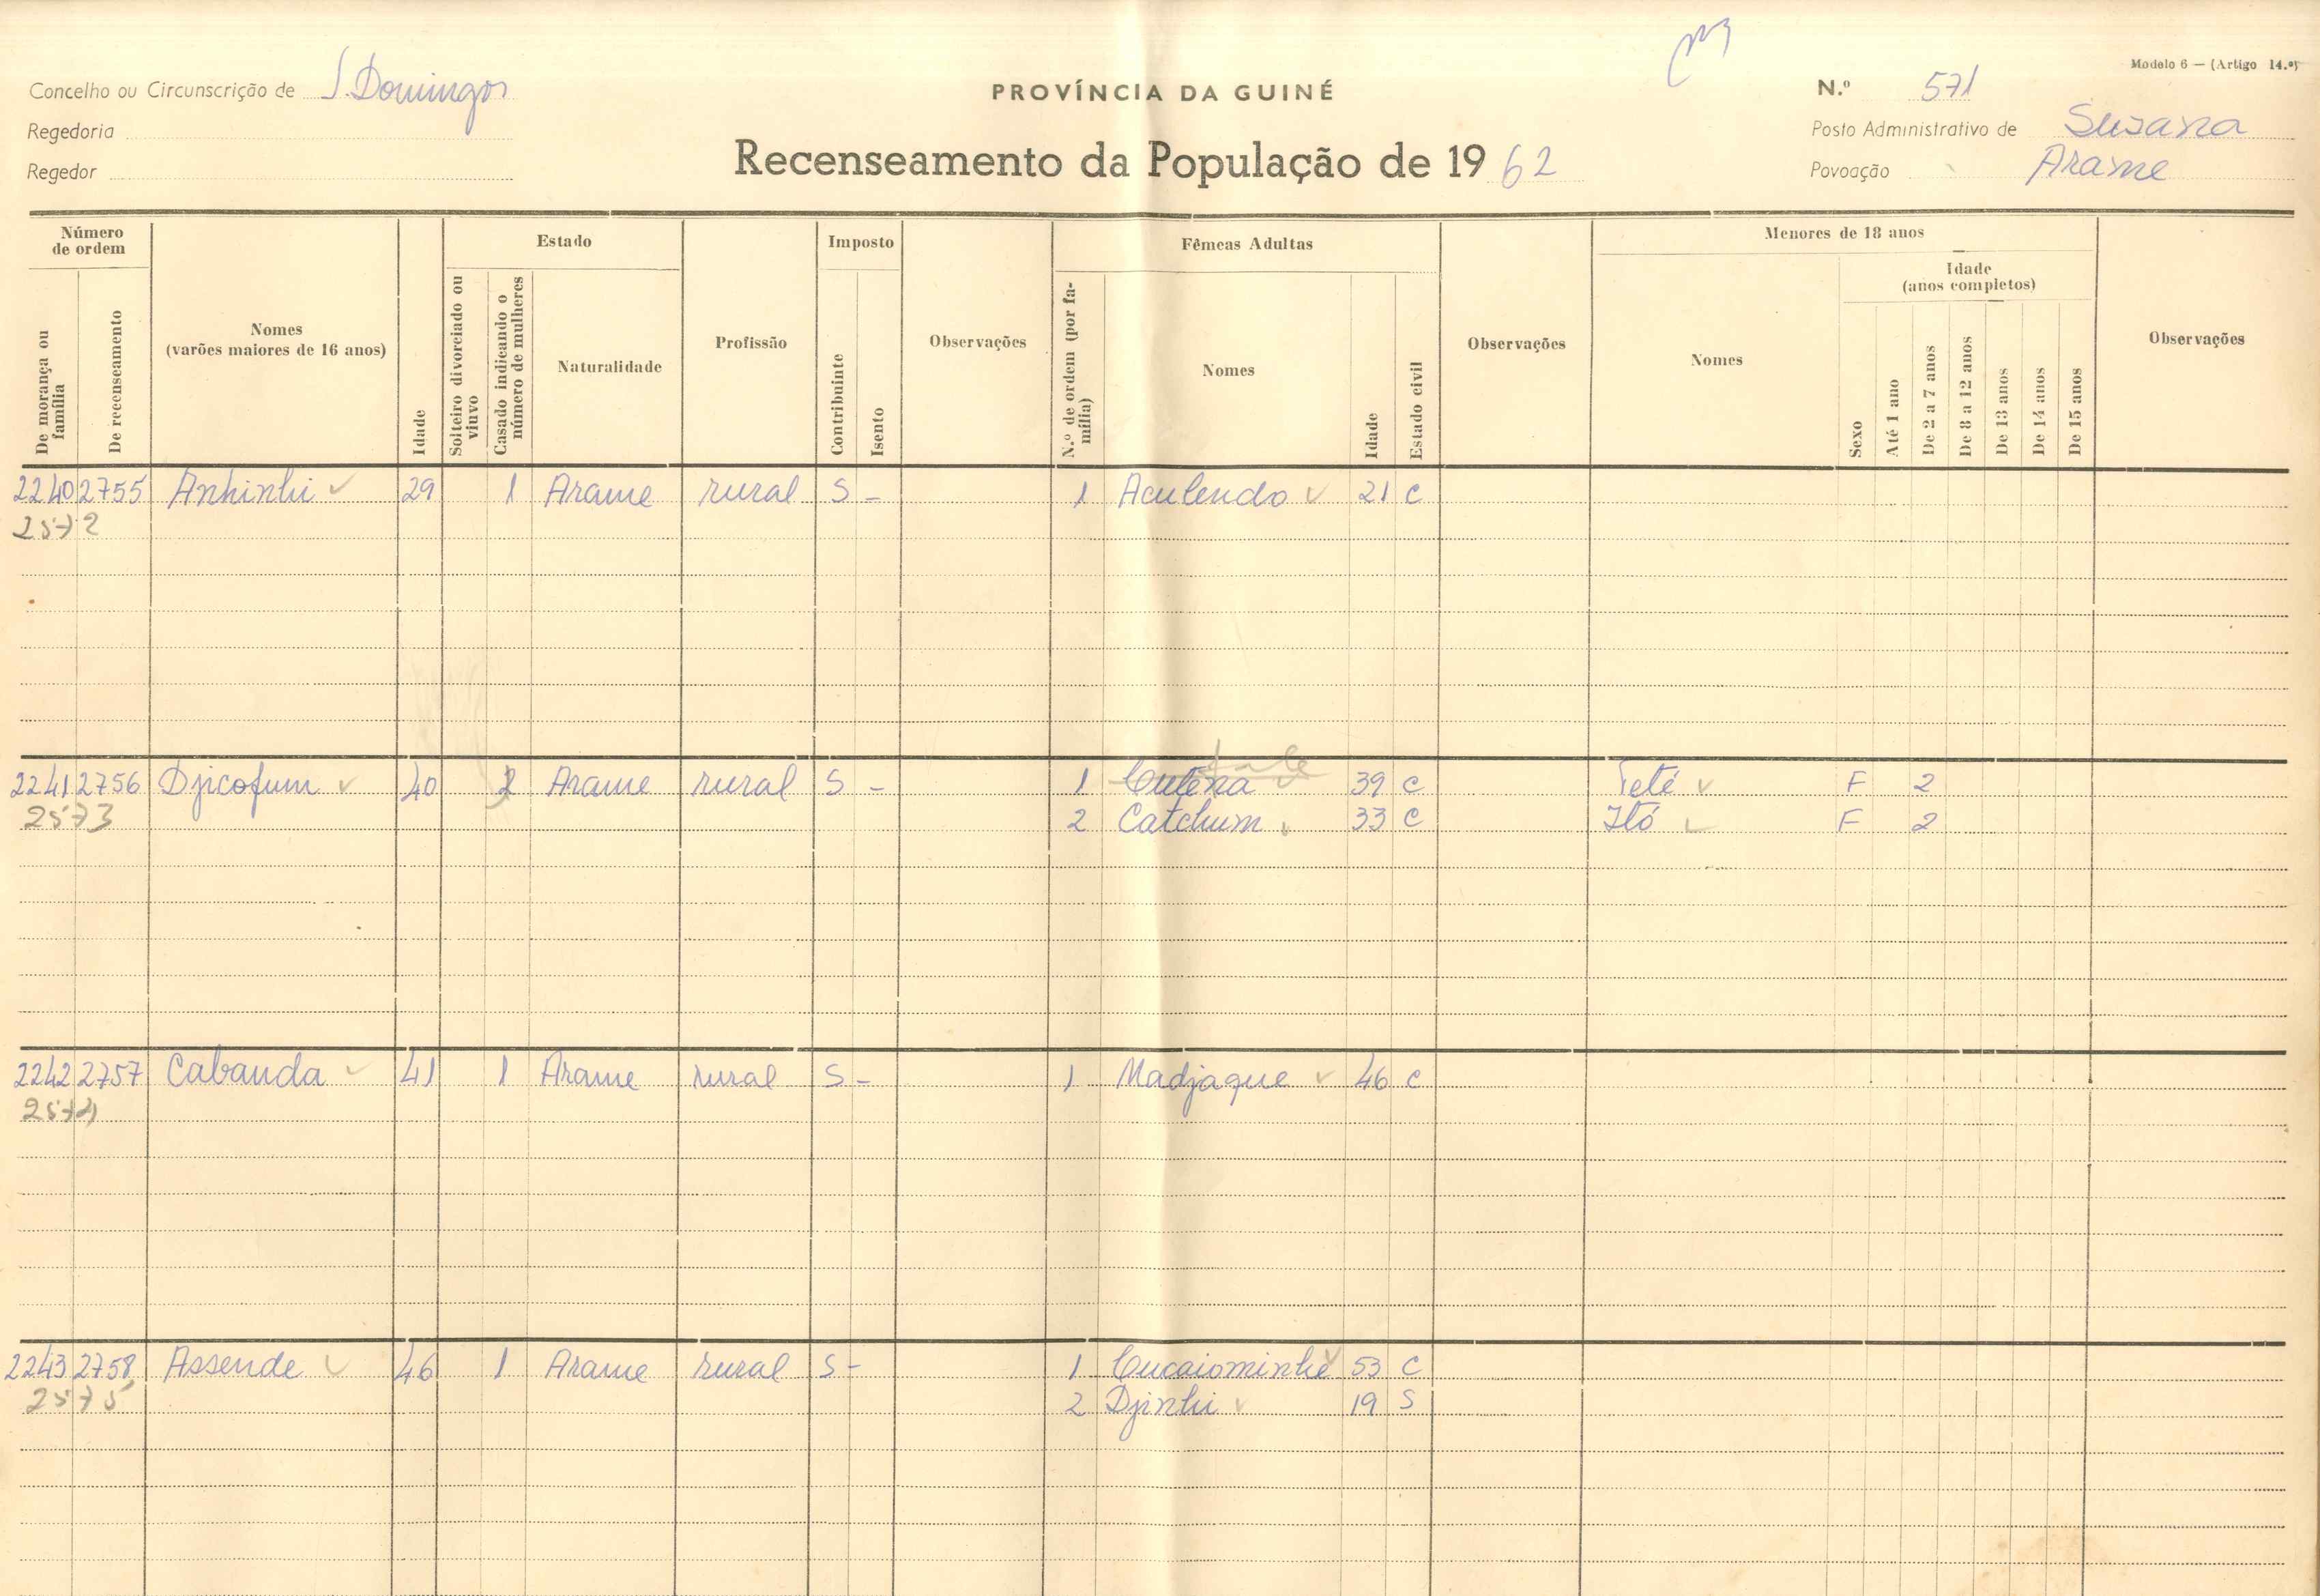 Modelo 6 — (Artigo 14.º)
Concelho ou Circunscrição de S. Domingos
PROVÍNCIA DA GUINÉ
N.º 571
Regedoria
Posto Administrativo de Susana
Regedor
Recenseamento da População de 1962
Povoação Arame
Número de ordem
De morança ou família
De recenseamento
Nomes
(varões maiores de 16 anos)
Idade
Estado
Solteiro divorciado ou viuvo
Casado indicando o número de mulheres
Naturalidade
Profissão
Imposto
Contribuinte
Isento
Observações
Fêmeas Adultas
N.º de ordem (por família)
Nomes
Idade
Estado civil
Observações
Menores de 18 anos
Nomes
Sexo
Idade
(anos completos)
Até 1 ano
De 2 a 7 anos
De 8 a 12 anos
De 13 anos
De 14 anos
De 15 anos
Observações
2240 2755 Anhinhi 29 1 Arame rural S - 1 Aculendo 21 C
2572
2241 2756 Djicofum 40 2 Arame rural S - 1 Cutena 39 C Teté F 2
2573 2 Catchum 33 C Itó F 2
2242 2757 Cabanda 41 1 Arame rural S - 1 Madjaque 46 C
2574
2243 2758 Assende 46 1 Arame rural S - 1 Cucaiominhe 53 C
2575 2 Djinhi 19 S